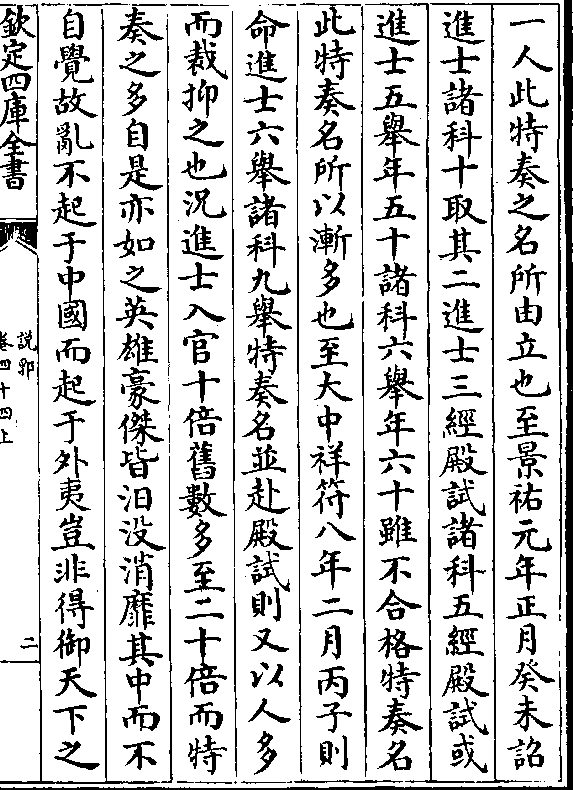 一人此特奏之名所由立也至景祐元年正月癸未詔
進士諸科十取其二進士三經殿試諸科五經殿試或
進士五舉年五十諸科六舉年六十雖不合格特奏名
此特奏名所以漸多也至大中祥符八年二月丙子則
命進士六舉諸科九舉特奏名並赴殿試則又以人多
而裁抑之也況進士入官十倍舊數多至二十倍而特
奏之多自是亦如之英雄豪傑皆汩没消靡其中而不
自覺故亂不起于中國而起于外夷豈非得御天下之
欽定四庫全書
說郛
卷四十四上
二